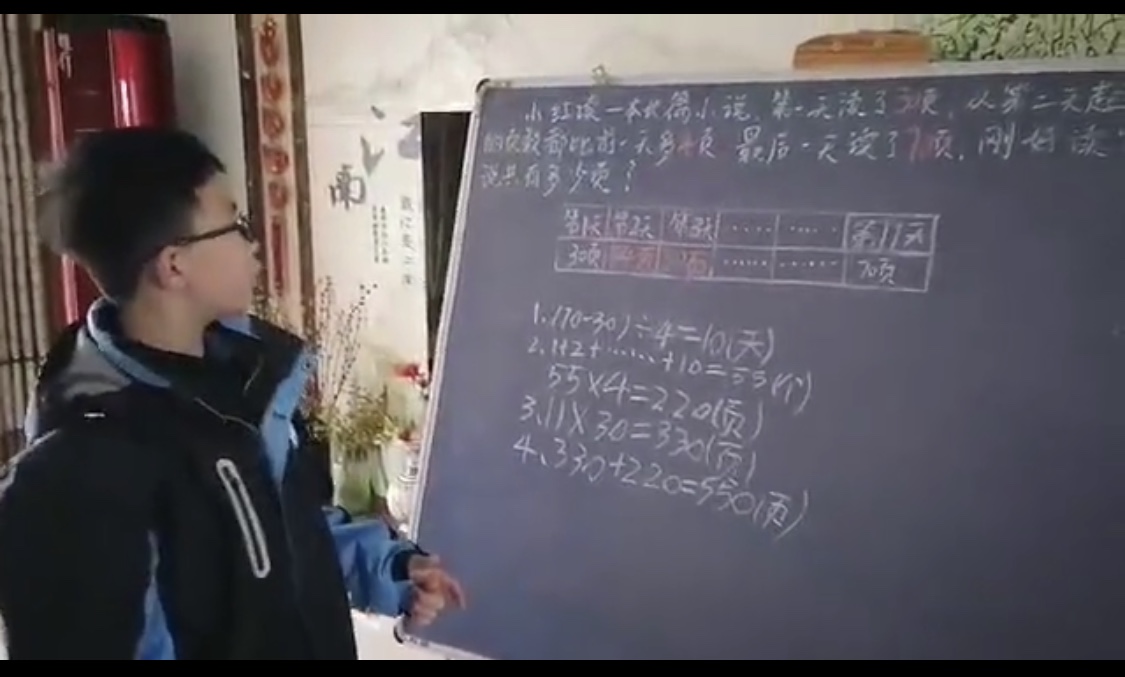 小红读一本长篇小说，第一天读了30页，从第二天起
的页数都比前一天多4页 最后一天读了70页，刚好读
说共有多少页？
第1天 第2天 第3天 …… …… 第11天
30页 …… …… 70页
1.(70-30)÷4=10(天)
2.1+2+……+10=55(个)
55×4=220(页)
3.11×30=330(页)
4、330+220=550(页)
江
南